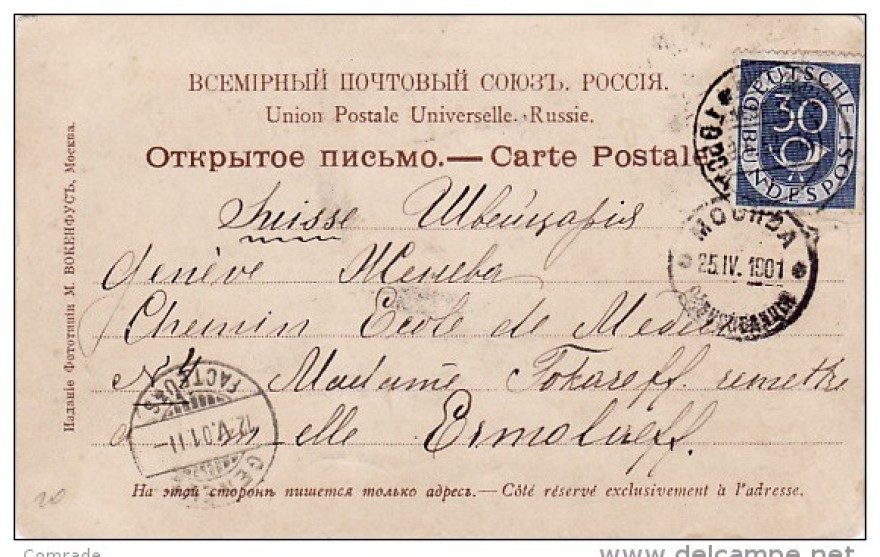 ВСЕМІРНЫЙ ПОЧТОВЫЙ СОЮЗЪ. РОССІЯ.
Union Postale Universelle. Russie.
Открытое письмо.— Carte Postale
DEUTSCHE
30
POST
BUNDESPOST
МОСКВА
25.IV.1901
Suisse Швейцарія
Genève Женева
Chemin Ecole de Médecine
N 4 Madame Tokareff. remettre
à m-elle Ermolaeff.
FACTEURS
12.V.01.11
На этой сторонѣ пишется только адресъ.— Côté réservé exclusivement à l'adresse.
Изданіе Фототипіи М. ВОКЕНФУСЪ, Москва.
20
Comrade
www.delcampe.net